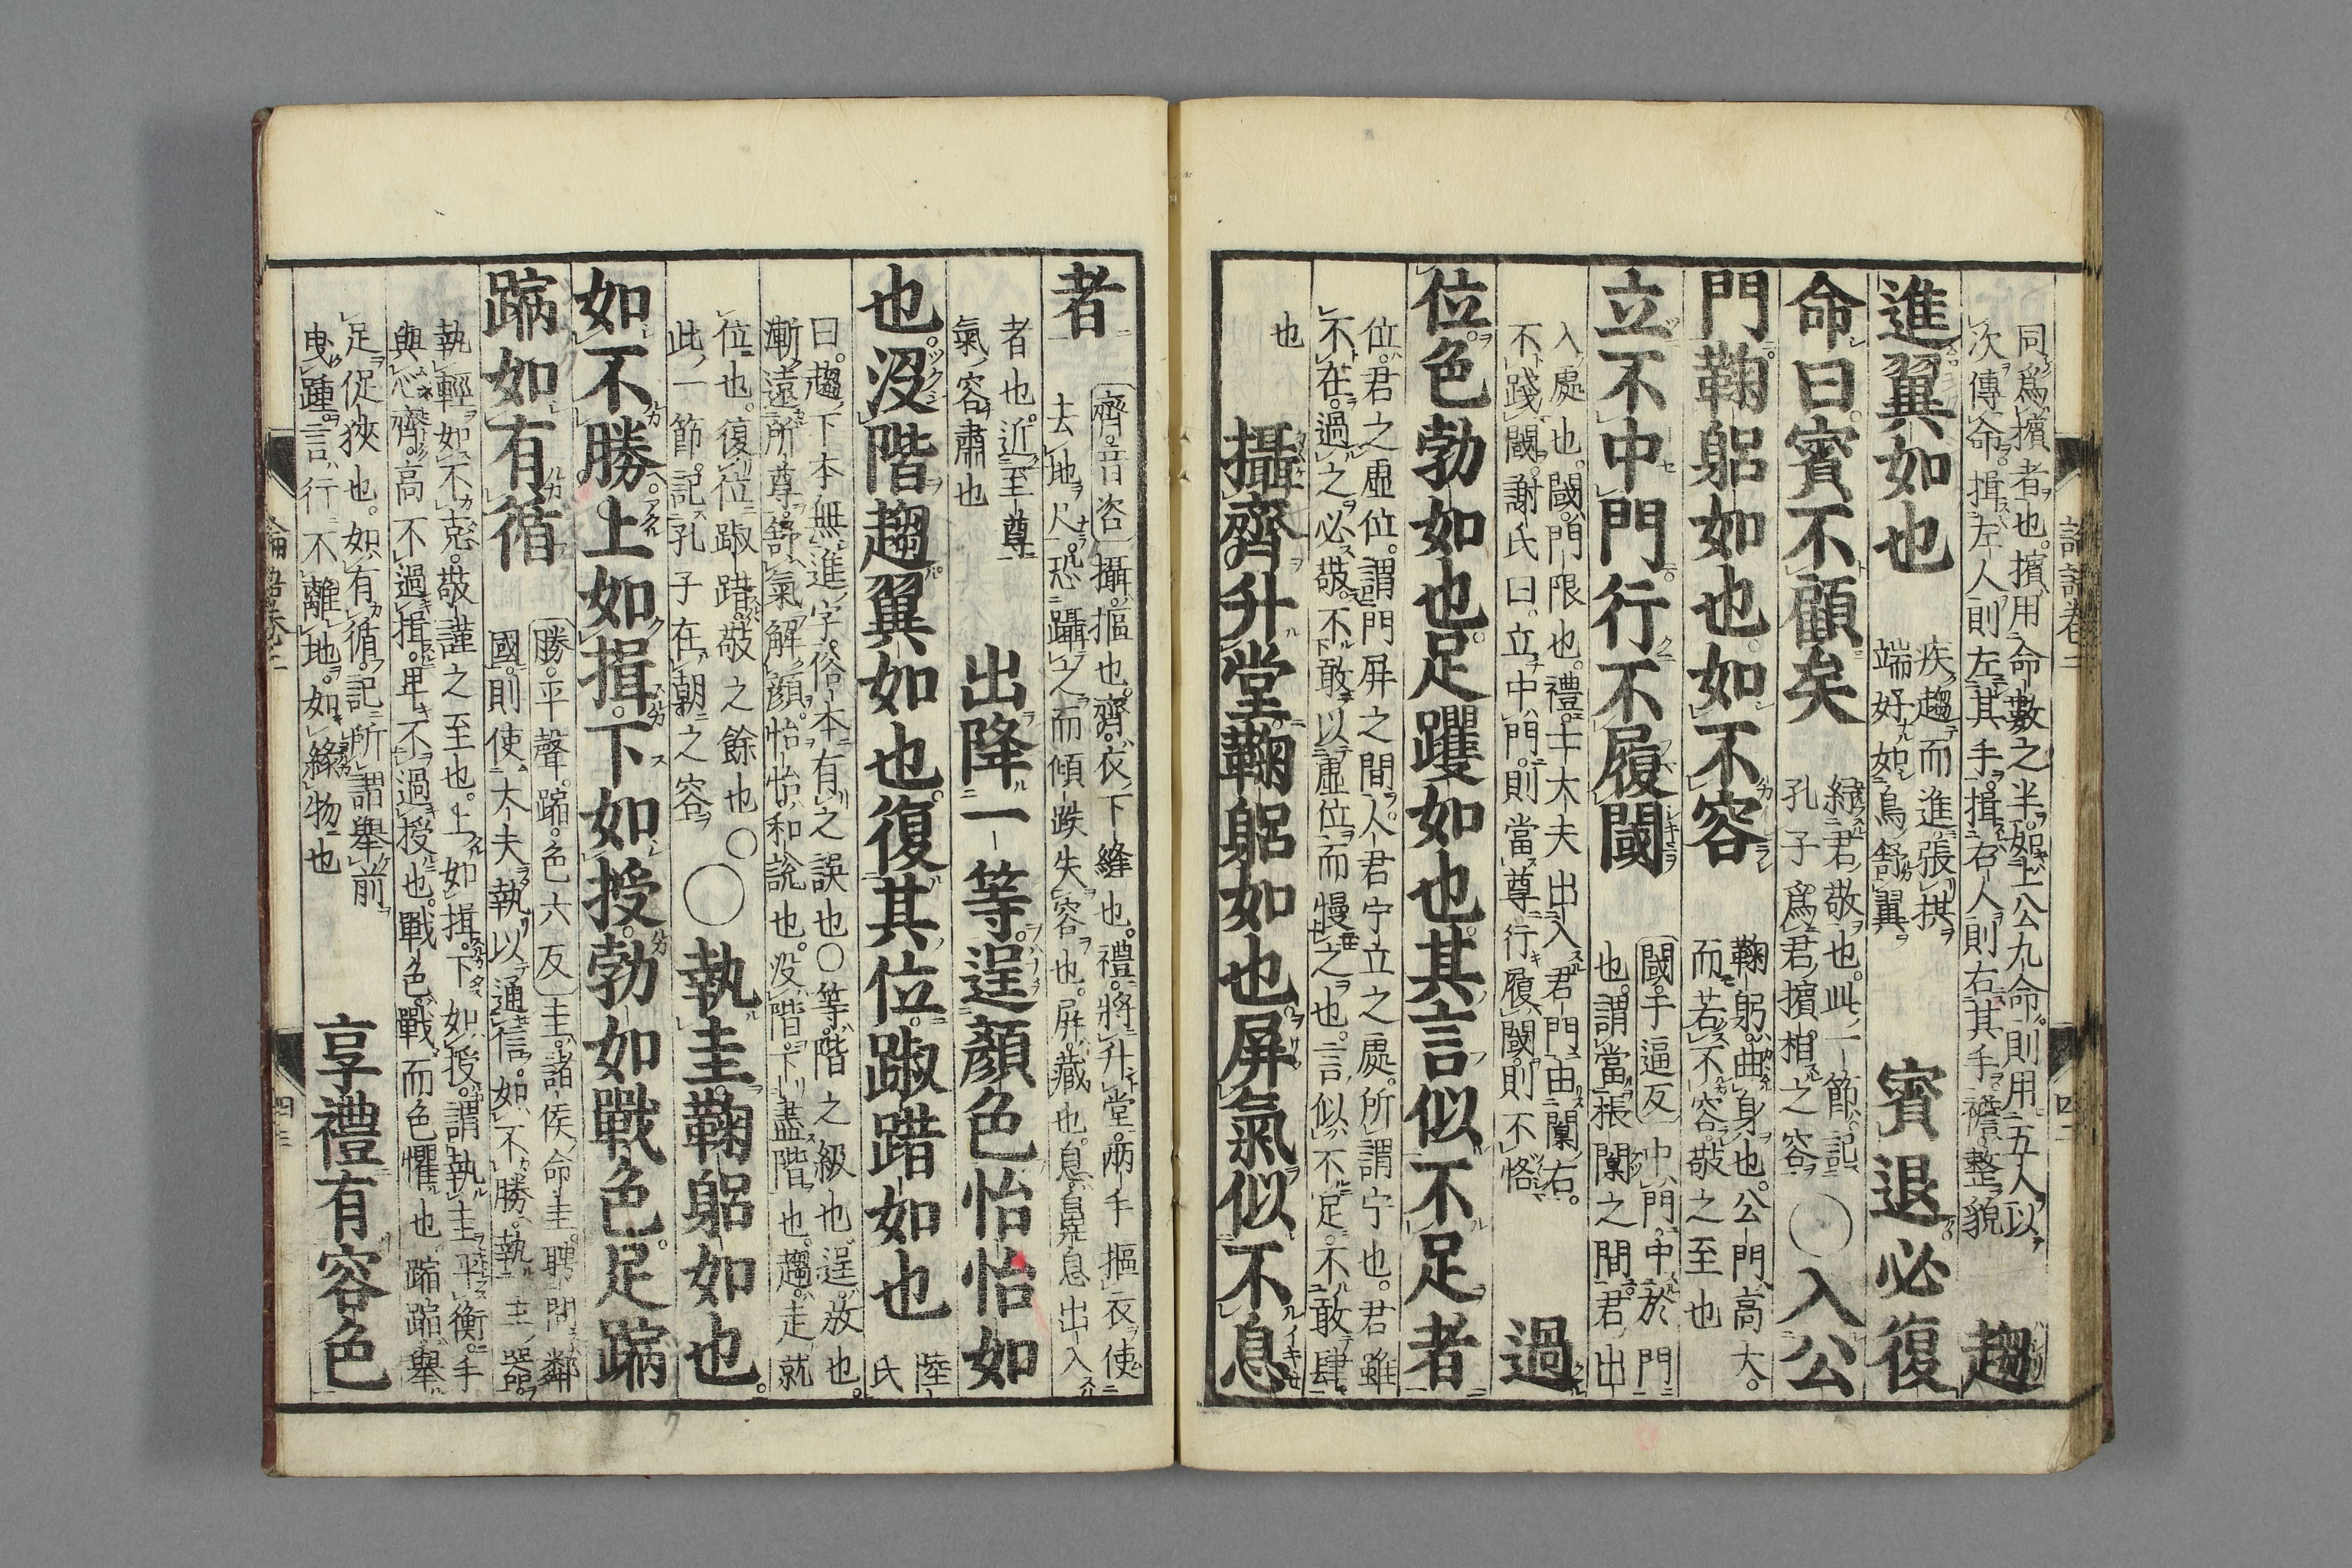 同爲擯者也。擯用命數之半。如上公九命則用五人以
次傳命。揖左人則左其手。揖右人則右其手。襜整貌
趨
進翼如也
疾趨而進。張拱
端好如鳥舒翼
賓退必復
命曰。賓不顧矣
紓君敬也。此一節。記
孔子爲君擯相之容
○入公
門鞠躬如也。如不容
鞠躬。曲身也。公門高大。
而若不容。敬之至也
立不中門行不履閾
閾。于逼反
中門。中於門
也。謂當棖闑之間。君出
入處也。閾。門限也。禮。士大夫出入君門由闑右。
不踐閾。謝氏曰。立中門。則當尊。行履閾。則不恪
過
位色勃如也。足躩如也。其言似不足者
位。君之虛位。謂門屏之間。人君宁立之處。所謂宁也。君雖
不在。過之必敬。不敢以虛位而慢之也。言似不足。不敢肆
也
攝齊升堂鞠躬如也。屏氣似不息
者
齊音咨
攝。摳也。齊。衣下縫也。禮。將升堂。兩手摳衣。使
去地尺。恐躡之而傾跌失容也。屏。藏也。息。鼻息出入
者也。近至尊
氣容肅也
出降一等。逞顏色怡怡如
也。沒階趨翼如也。復其位。踧踖如也
陸
氏
曰。趨下本無進字。俗本有之誤也○等。階之級也。逞。放也。
漸遠所尊。舒氣解顏。怡怡。和說也。沒階。下盡階也。趨。走就
位也。復位踧踖。敬之餘也。○
此一節。記孔子在朝之容
○執圭。鞠躬如也。
如不勝。上如揖。下如授。勃如戰色。足蹜
蹜如有循
勝。平聲。蹜。色六反
圭。諸侯命圭。聘問鄰
國。則使大夫執以通信。如不勝。執主器。
執輕如不克。敬謹之至也。上如揖。下如授。謂執圭平衡。手
與心齊。高不過揖。卑不過授也。戰色。戰而色懼也。蹜蹜。舉
足促狹也。如有循。記所謂舉前
曳踵。言行不離地。如緣物也
享禮有容色
論語卷二
四二
論語卷二
四三